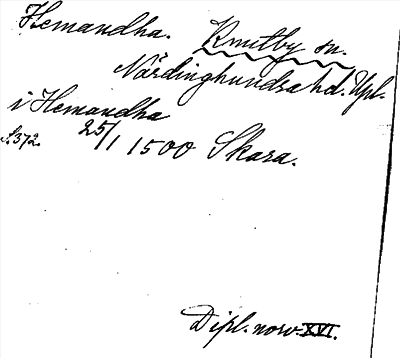 Hemandha. Knutby sn.
Närdinghundra hd. Upl.
i Hemandha
S. 372. 25/1 1500 Skara.
Dipl. norv. XVI.